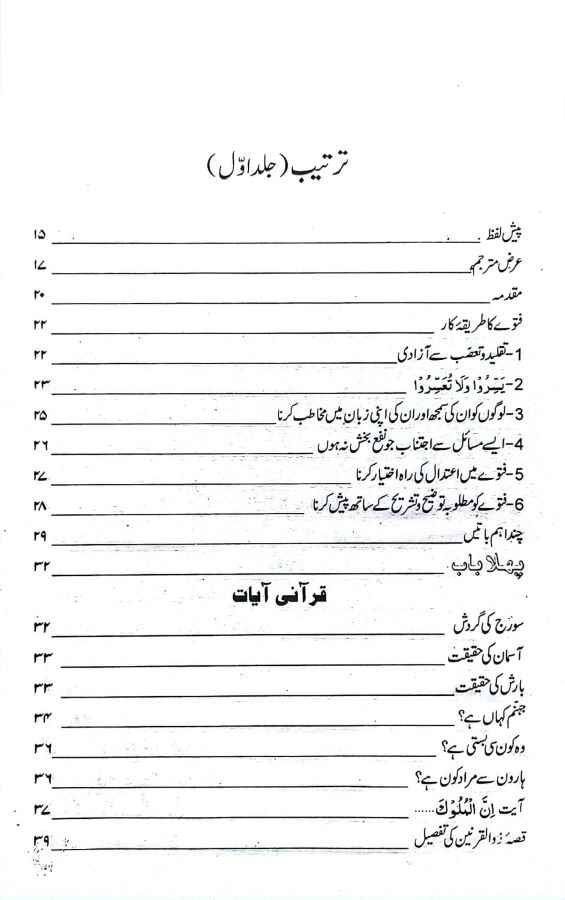 ترتیب (جلد اوّل)
پیش لفظ ۱۵
عرض مترجم ۱۷
مقدمہ ۲۰
فتوے کا طریقۂ کار ۲۲
1-تقلید و تعصّب سے آزادی ۲۲
2-یَسِّرُوْا وَلَا تُعَسِّرُوْا ۲۳
3-لوگوں کو ان کی سمجھ اور ان کی اپنی زبان میں مخاطب کرنا ۲۵
4-ایسے مسائل سے اجتناب جو نفع بخش نہ ہوں ۲۶
5-فتوے میں اعتدال کی راہ اختیار کرنا ۲۷
6-فتوے کو مطلوبہ توضیح و تشریح کے ساتھ پیش کرنا ۲۸
چند اہم باتیں ۲۹
پہلا باب ۳۲
قرآنی آیات
سورج کی گردش ۳۲
آسمان کی حقیقت ۳۳
بارش کی حقیقت ۳۳
جہنم کہاں ہے؟ ۳۴
وہ کون سی بستی ہے؟ ۳۶
ہارون سے مراد کون ہے؟ ۳۶
آیت اِنَّ الْمُلُوْکَ...... ۳۷
قصہ ذوالقرنین کی تفصیل ۳۹